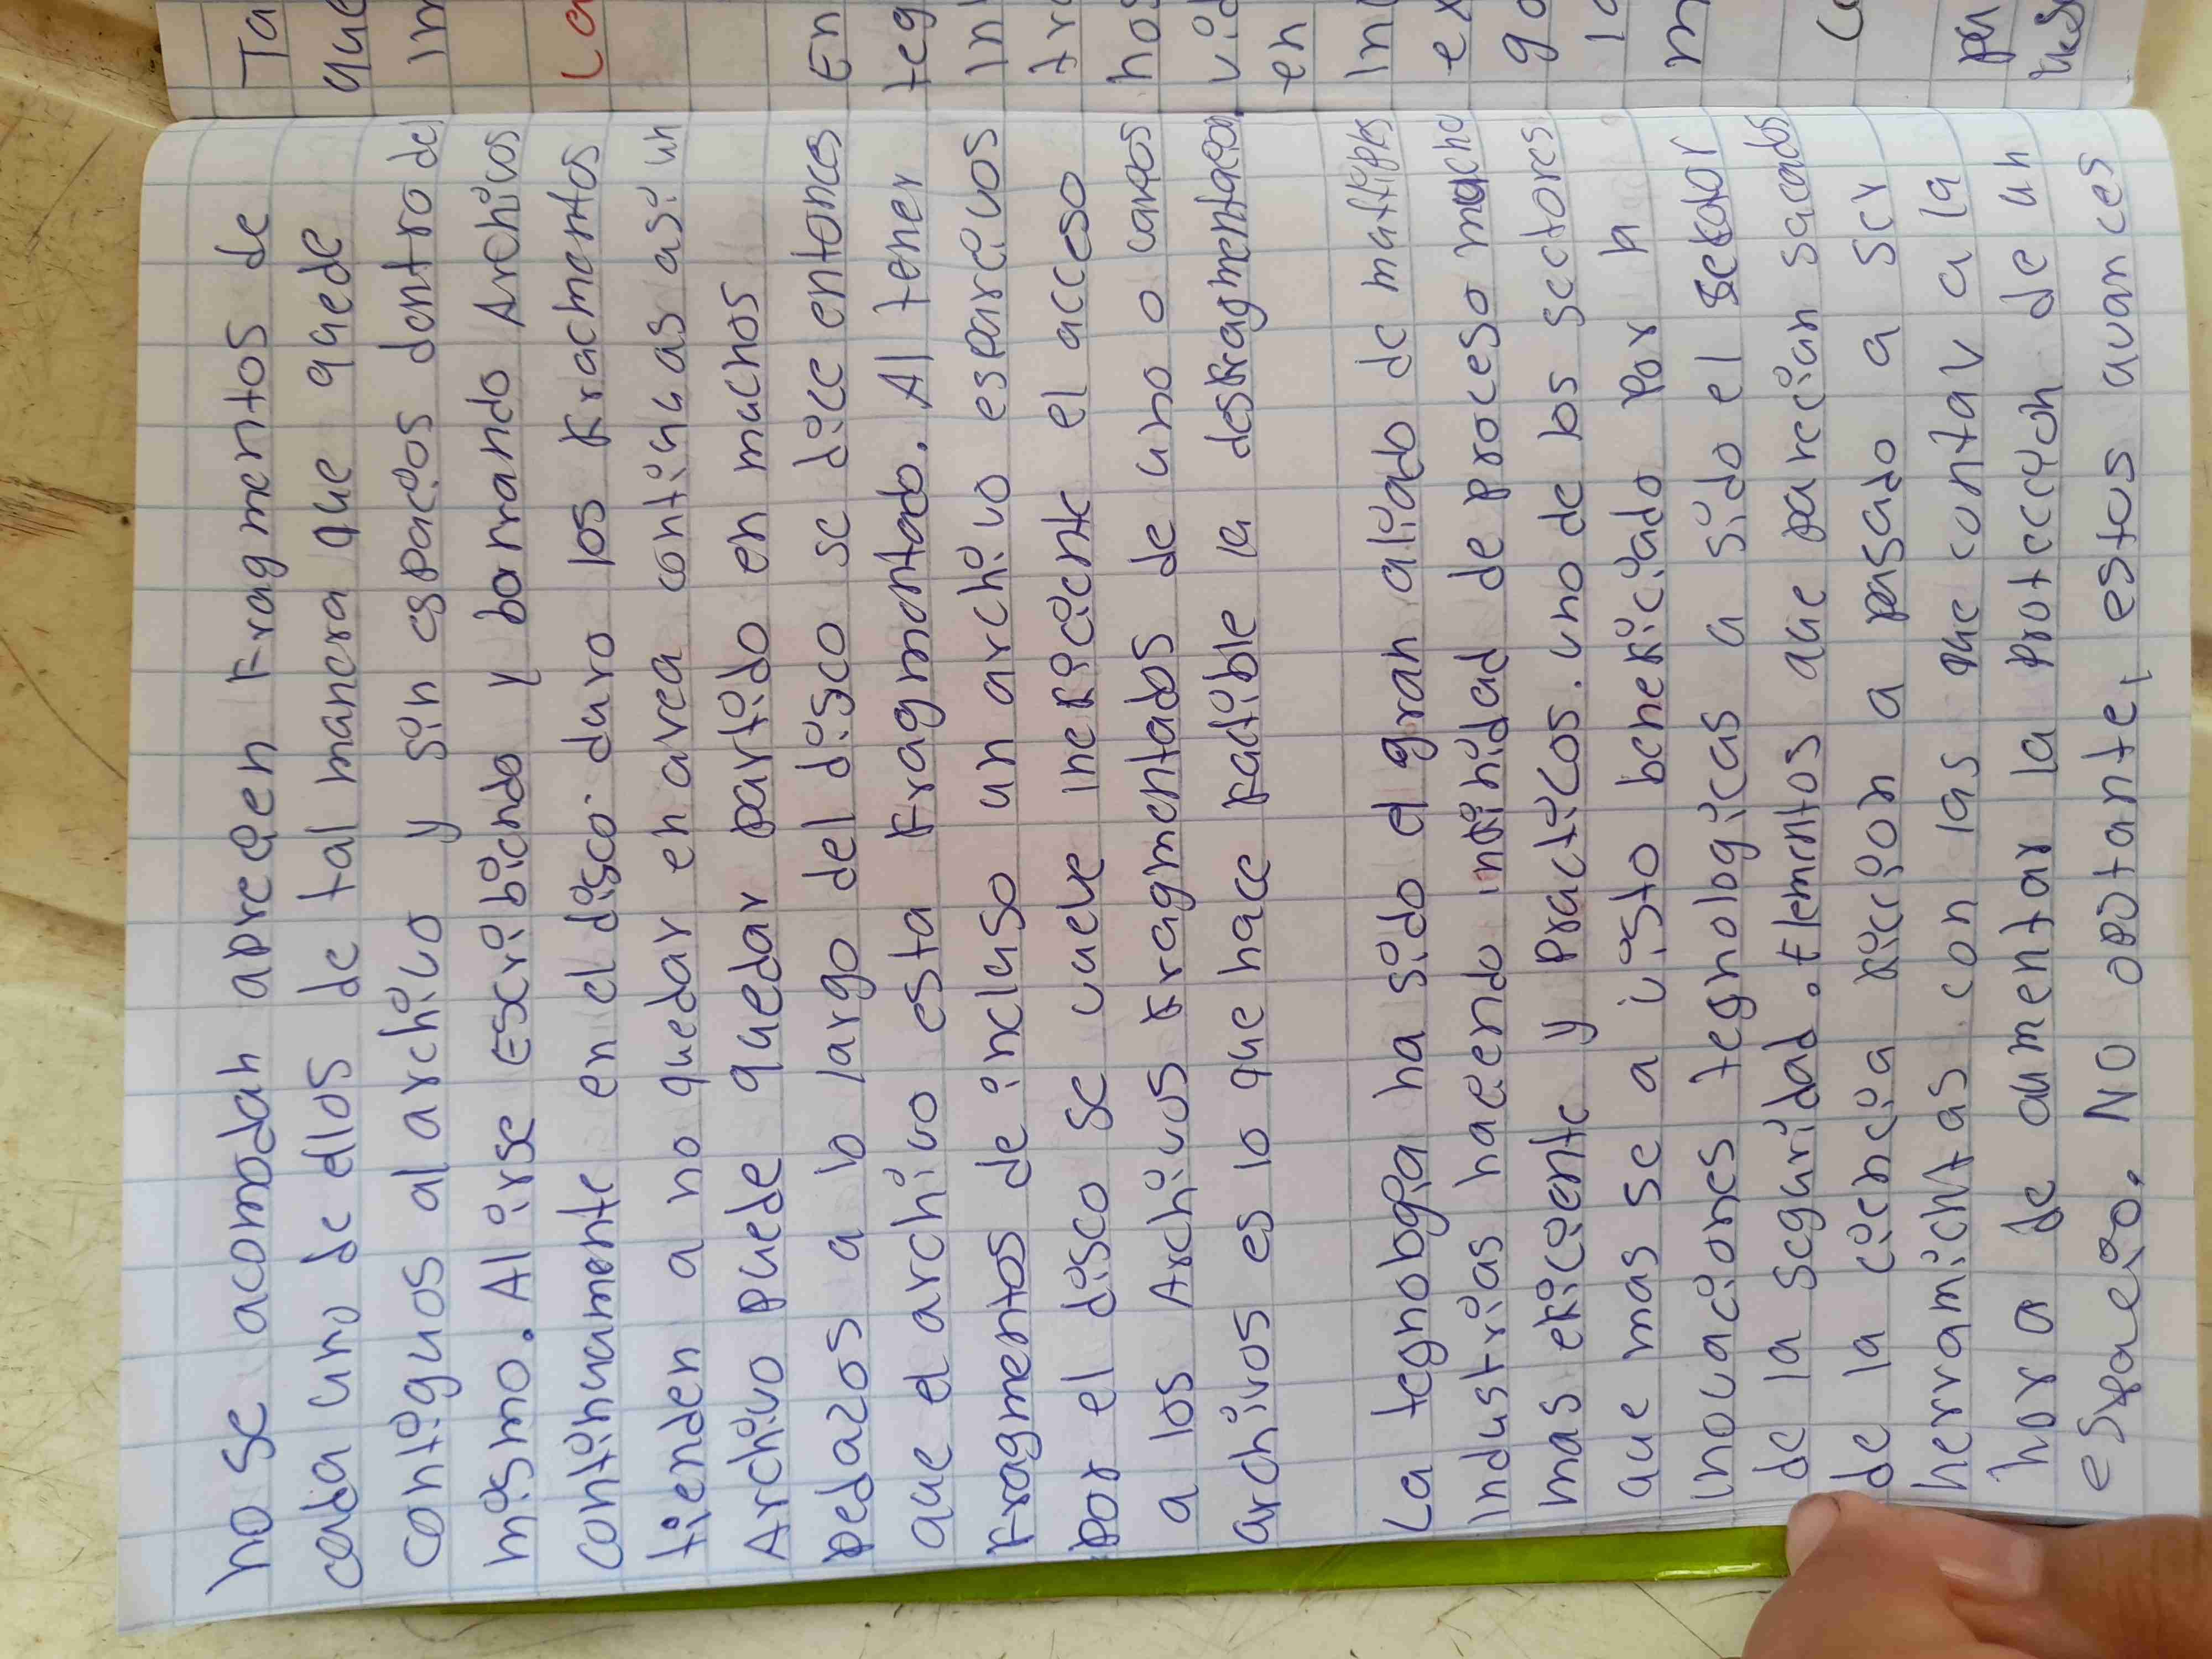 no se acomodan aprecien Fragmentos de
cada uno de ellos de tal manera que quede
contiguos al archivo y sin espacios dentro del
mismo. Al irse Escribiendo y borrando Archivos
continuamente en el disco duro los Fracmentos
tienden a no quedar en area continuas asi un
Archivo puede quedar partido en muchos
pedazos a lo largo del disco se dice entonces
que el archivo esta Fragmentado. Al tener
Fragmentos de incluso un archivo esparcivos
por el disco se vuelve ineficiente el acceso
a los Archivos Fragmentados de uno o
archivos es lo que hace factible la desfragmentacion
La tegnologia ha sido el gran aliado de multiples
Industrias haciendo infinidad de proceso mucho
mas eficiente y practicos. uno de los sectores
que mas se a visto beneficiado por h
inovaciones tegnologicas a sido el sector
de la seguridad. Elementos que parecian sacados
de la ciencia ficcion a pasado a ser
herramientas con las que contar a la
hora de aumentar la proteccyon de un
espacio. No opstante, estos avances
Ta
que
Im
La
En
teg
In
tra
hos
vid
en
In
ex
go
la
m